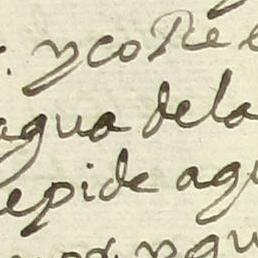 y coRe
agua dela
epide agu
y qu